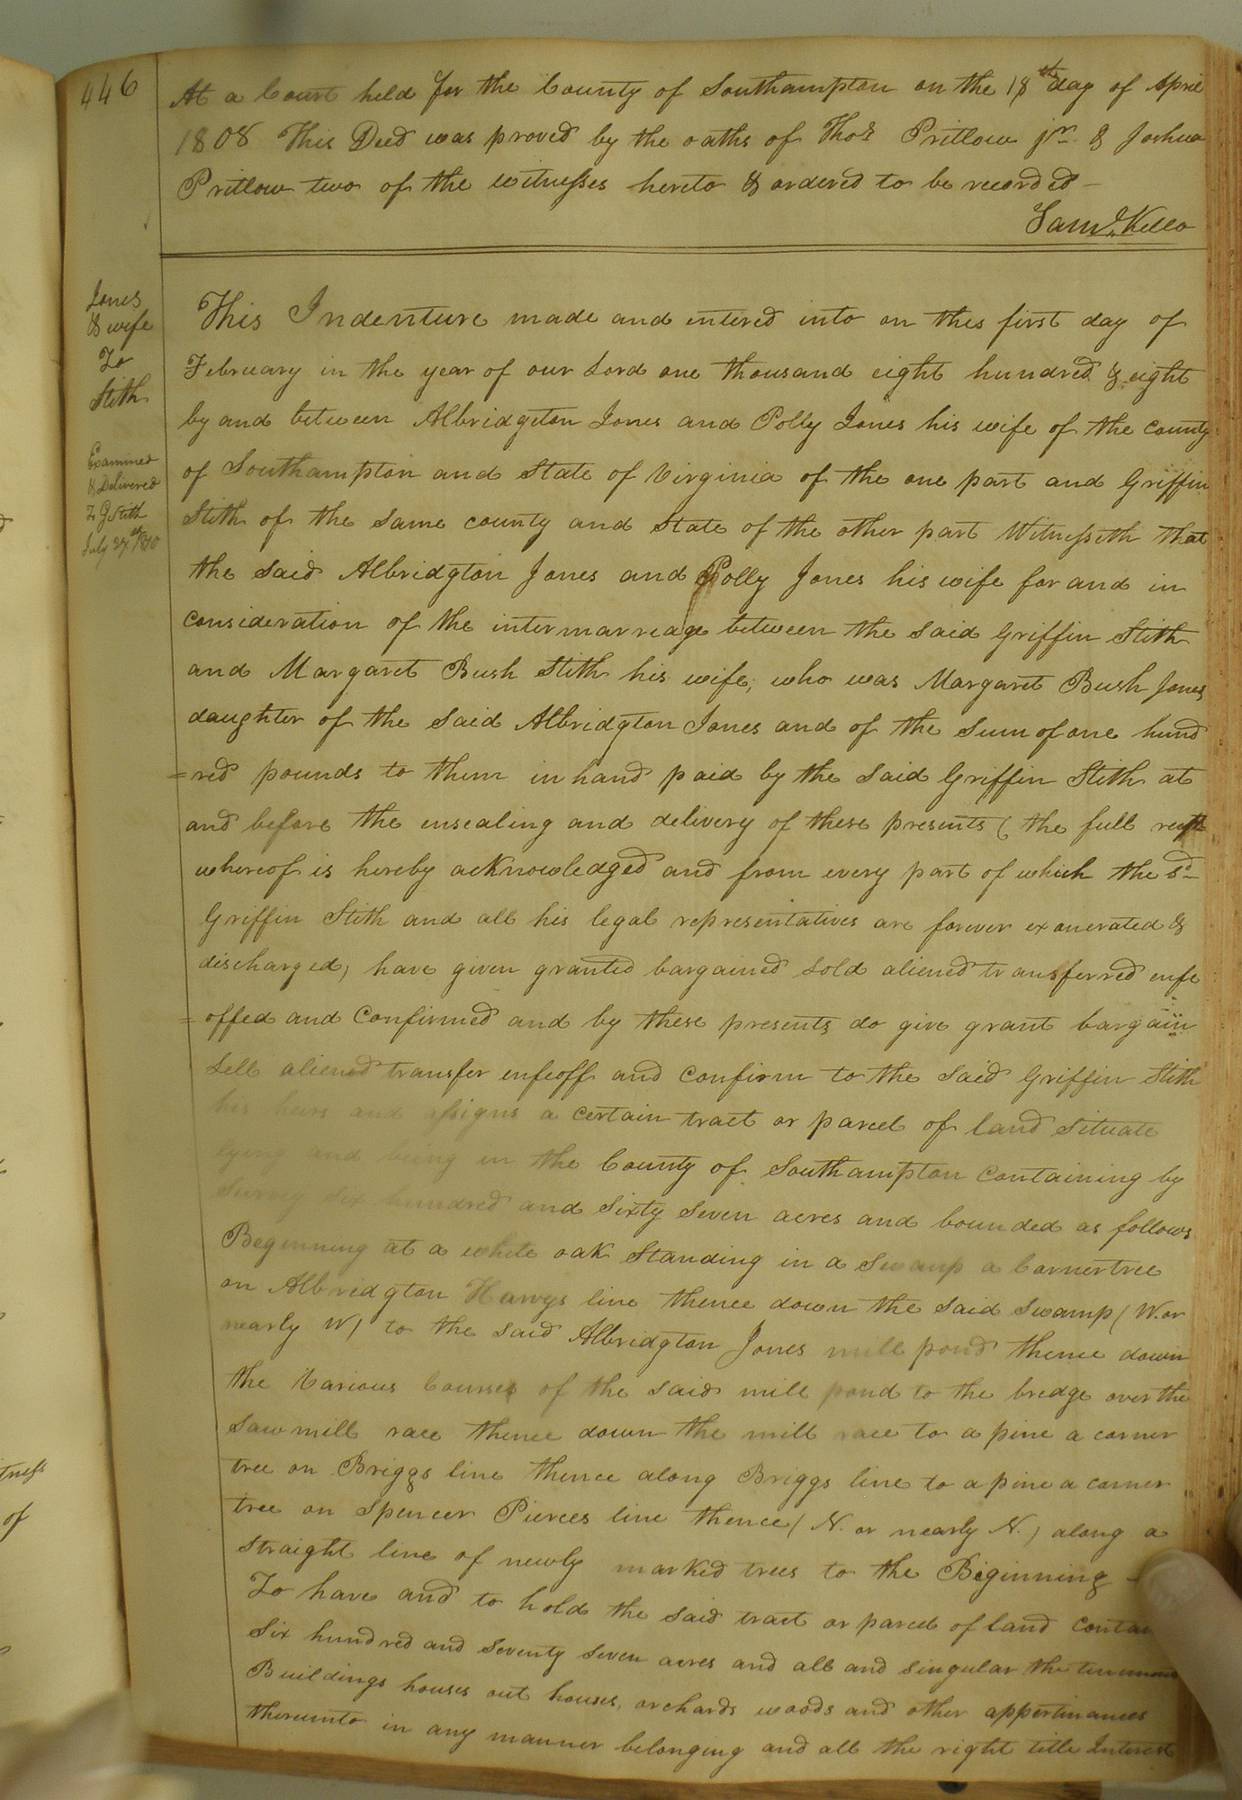 446
At a Court held for the County of Southampton on the 18th day of April
1808 This Deed was proved by the oaths of Thos Pritlow jr. & Joshua
Pritlow two of the witnesses hereto & ordered to be recorded –
Saml. Kello
Jones
& wife
To
Stith
Examined
& Delivered
To G Stith
July 27th 1810
This Indenture made and entered into on this first day of
February in the year of our Lord one thousand eight hundred & eight
by and between Albridgeton Jones and Polly Jones his wife of the County
of Southampton and State of Virginia of the one part and Griffin
Stith of the same county and State of the other part Witnesseth that
the said Albridgton Jones and Polly Jones his wife for and in
consideration of the intermarreage between the said Griffin Stith
and Margaret Bush Stith his wife, who was Margaret Bush Jones
daughter of the said Albridgton Jones and of the sum of one hund
=red pounds to them in hand paid by the said Griffin Stith at
and before the ensealing and delivery of these presents (the full
whereof is hereby acknowledged and from every part of which the sd
Griffin Stith and all his legal representatives are forever exonerated &
discharged, have given granted bargained sold aliened transferred enfe
=offed and confirmed and by these presents do give grant bargain
sell aliened transfer enfeoff and confirm to the said Griffin Stith
his heirs and assigns a certain tract or parcel of land situate
lying and being in the County of Southampton containing by
survey six hundred and sixty seven acres and bounded as follows
Beginning at a white oak standing in a swamp a Cornertree
on Albridgton Harrys line thence down the said swamp (W. or
nearly W) to the said Albridgton Jones mill pond thence down
the Various Courses of the said mill pond to the bredge over the
saw mill race thence down the mill race to a pine a corner
tree on Briggs line thence along Briggs line to a pine a corner
tree on Spencer Pierces line thence (N. or nearly N.) along a
straight line of newly marked trees to the Beginning –
To have and to hold the said tract or parcel of land
six hundred and seventy seven acres and all and singular the
Buildings houses out houses, orchards woods and other appertinances
thereunto in any manner belonging and all the right title Interest